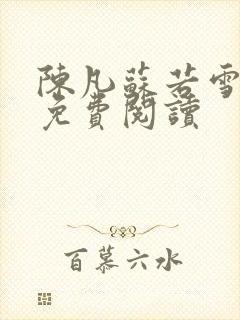 陳凡蘇若雪
免費閱讀
百慕六水